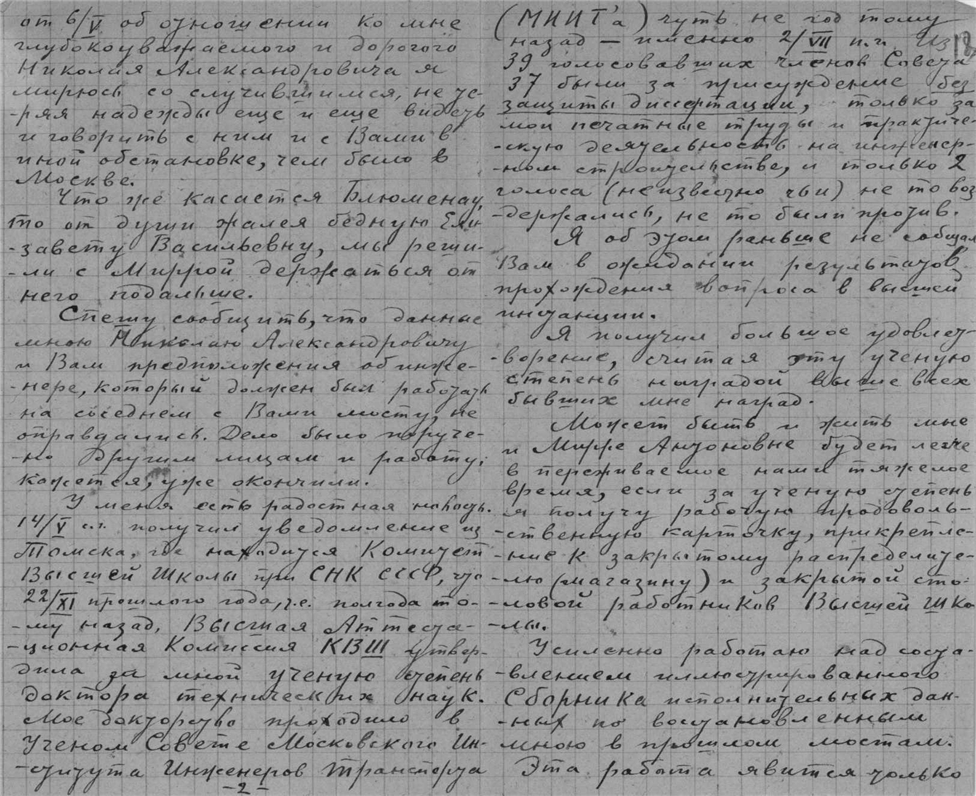 от 6/V об отношении ко мне
глубокоуважаемого и дорогого
Николая Александровича я
мирюсь со случившимся, не те-
-ряя надежды еще и еще видеть
и говорить с ним и с Вами в
иной обстановке, чем было в
Москве.
Что же касается Блюменау,
то от души жалея бедную Ели-
-завету Васильевну, мы реши-
-ли с Миррой держаться от
него подальше.
Спешу сообщить, что данные
мною Николаю Александровичу
и Вам предположения об инже-
-нере, который должен был работать
на соседнем с Вами мосту, не
оправдались. Дело было поруче-
-но другим лицам и работу,
кажется, уже окончили.
У меня есть радостная новость.
14/V с.г. получил уведомление из
Томска, где находится Комитет
Высшей Школы при СНК СССР, что
22/XI прошлого года, т.е. полгода то-
-му назад, Высшая Аттеста-
-ционная Комиссия КВШ утвер-
дила за мной ученую степень
доктора технических наук.
Мое докторство проходило в
Ученом Совете Московского Ин-
-ститута Инженеров Транспорта
-2-
(МИИТ'а) чуть не год тому
назад – именно 2/VII п.г. Из
39 голосовавших членов Совета
37 были за присуждение без
защиты диссертации, только за
мои печатные труды и практиче-
-скую деятельность на инженер-
-ном строительстве, и только 2
голоса (неизвестно чьи) не то воз
-держались, не то были против.
Я об этом раньше не сообщал
Вам в ожидании результатов
прохождения вопроса в высшей
инстанции.
Я получил большое удовлет-
-ворение, считая эту ученую
степень наградой выше всех
бывших мне наград.
Может быть и жить мне
и Мирре Антоновне будет легче
в переживаемое нами тяжелое
время, если за ученую степень
я получу рабочую продоволь-
-ственную карточку, прикрепле-
-ние к закрытому распределите-
-лю (магазину) и закрытой сто-
-ловой работников Высшей Шко-
-лы.
Усиленно работаю над соста-
-влением иллюстрированного
Сборника исполнительных дан-
-ных по восстановленным
мною в прошлом мостам.
Эта работа явится только